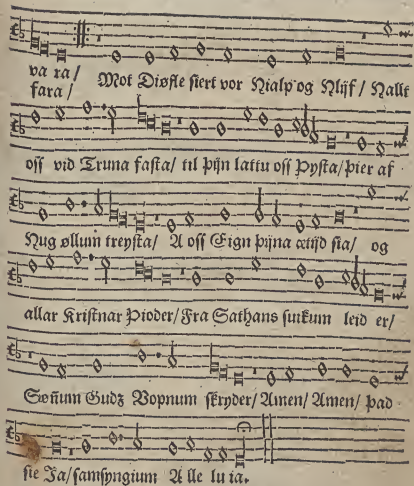 va ra/
fara/ Mot Diøfle siert vor Hialp og Hlijf/ Hallt
oss vid Truna fasta/ til þijn lattu oss Þysta/ þier af
Hug øllum treysta/ A oss Eign þijna ætijd sia/ og
allar Kristnar Þioder/ Fra Sathans suikum leid er/
Sønum Gudz Vopnum skryder/ Amen/ Amen/ þad
sie Ja/ samsyngium A lle lu ia.